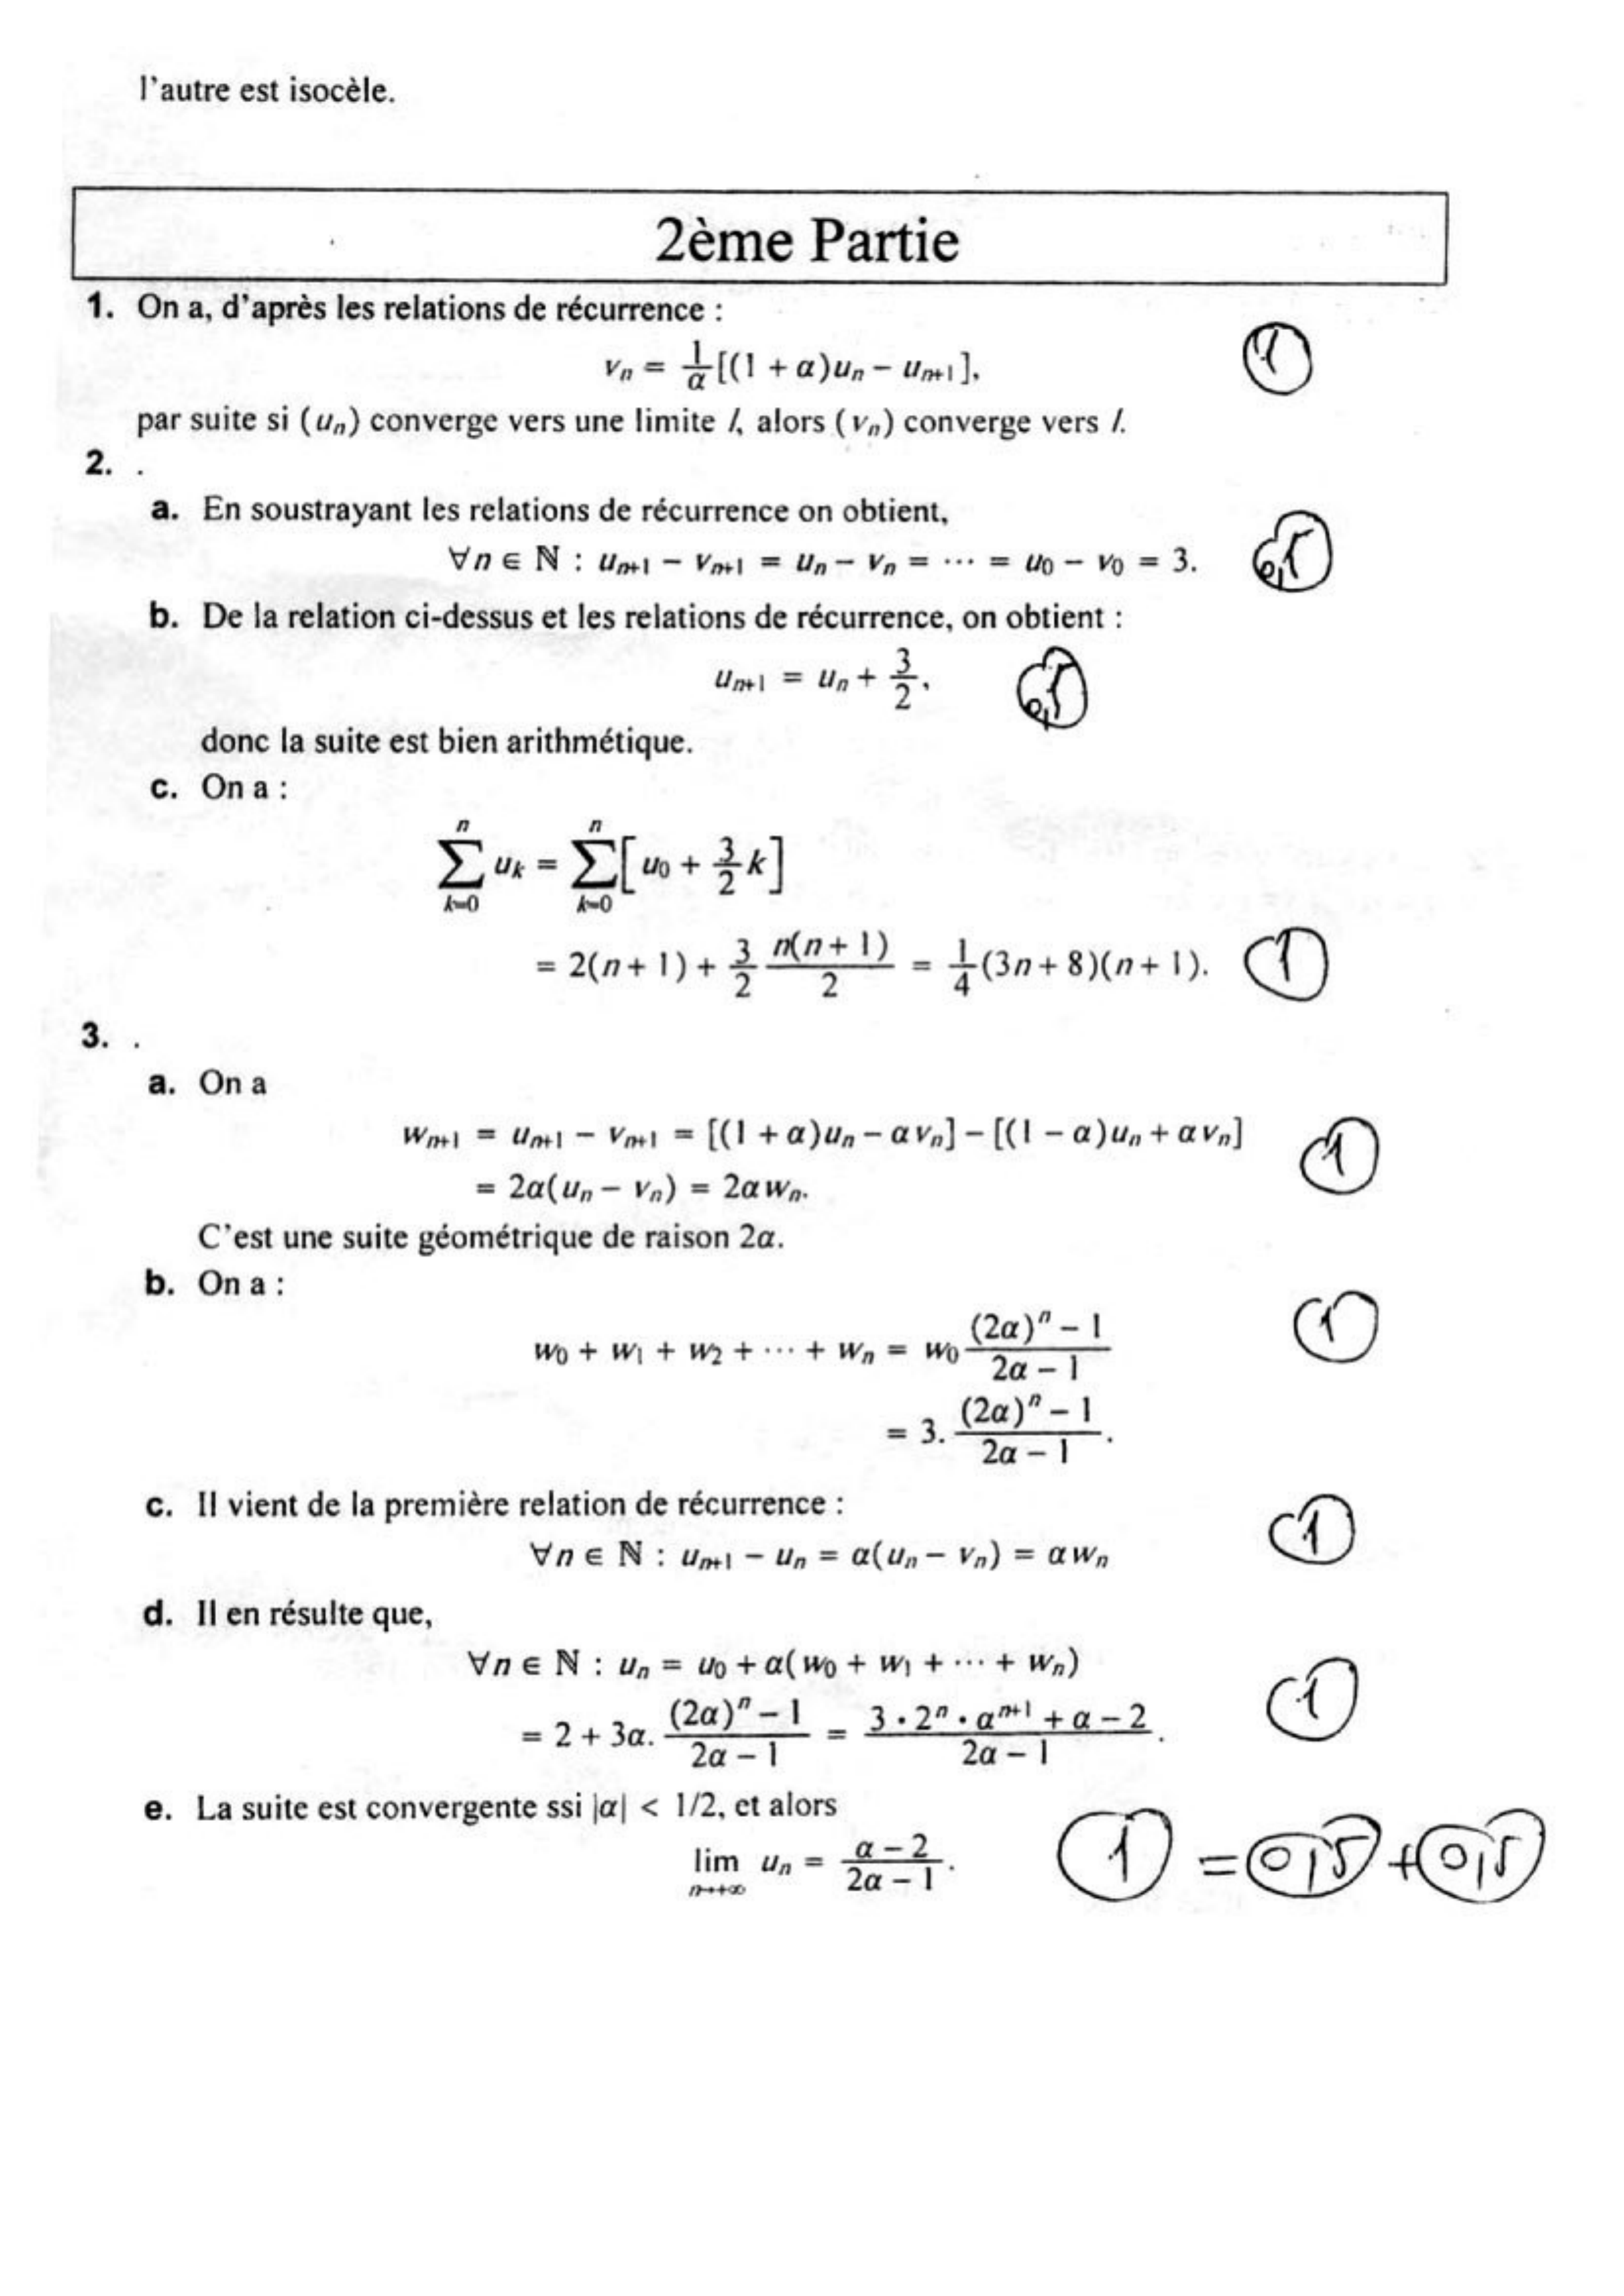 l'autre est isocèle.
2ème Partie
1. On a, d'après les relations de récurrence :
vₙ = 1/α [(1 + α)uₙ − uₙ₊₁],
1
par suite si (uₙ) converge vers une limite l, alors (vₙ) converge vers l.
2. .
a. En soustrayant les relations de récurrence on obtient,
∀n ∈ ℕ : uₙ₊₁ − vₙ₊₁ = uₙ − vₙ = ⋯ = u₀ − v₀ = 3.
0,5
b. De la relation ci-dessus et les relations de récurrence, on obtient :
uₙ₊₁ = uₙ + 3/2,
0,5
donc la suite est bien arithmétique.
c. On a :
∑ₖ₌₀ⁿ uₖ = ∑ₖ₌₀ⁿ [u₀ + 3/2 k]
= 2(n + 1) + 3/2 n(n + 1)/2 = 1/4 (3n + 8)(n + 1).
1
3. .
a. On a
wₙ₊₁ = uₙ₊₁ − vₙ₊₁ = [(1 + α)uₙ − αvₙ] − [(1 − α)uₙ + αvₙ]
1
= 2α(uₙ − vₙ) = 2αwₙ.
C'est une suite géométrique de raison 2α.
b. On a :
w₀ + w₁ + w₂ + ⋯ + wₙ = w₀ ((2α)ⁿ − 1)/(2α − 1)
1
= 3. ((2α)ⁿ − 1)/(2α − 1).
c. Il vient de la première relation de récurrence :
∀n ∈ ℕ : uₙ₊₁ − uₙ = α(uₙ − vₙ) = αwₙ
1
d. Il en résulte que,
∀n ∈ ℕ : uₙ = u₀ + α(w₀ + w₁ + ⋯ + wₙ)
= 2 + 3α. ((2α)ⁿ − 1)/(2α − 1) = (3 · 2ⁿ · αⁿ⁺¹ + α − 2)/(2α − 1).
1
e. La suite est convergente ssi |α| < 1/2, et alors
lim n→+∞ uₙ = (α − 2)/(2α − 1).
1 = 0,5 + 0,5